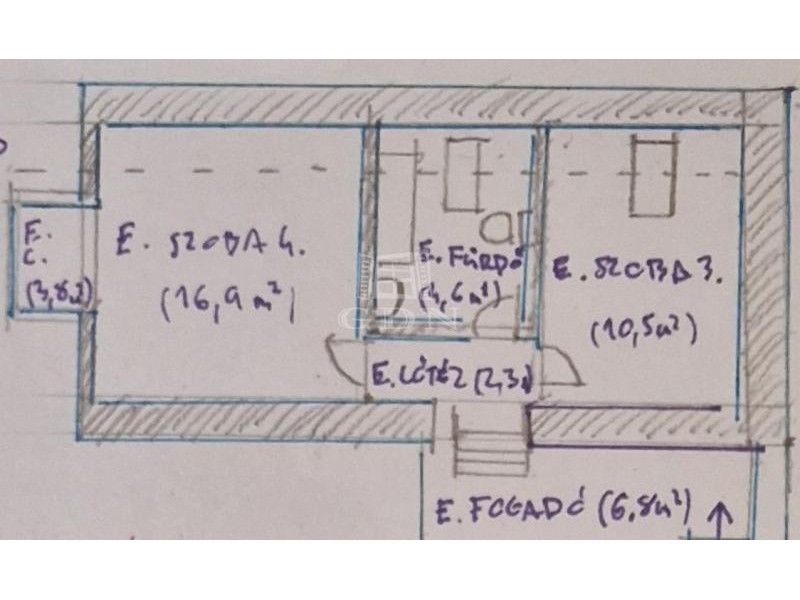 E. SZOBA 4.
(16,9 m²)
E.
C.
(3,8
E. FÜRDŐ
(4,6 m²)
GDN
E. SZOBA 3.
(10,5 m²)
E. KÖZL. (2,3
E. FOGADÓ (6,8 m²)